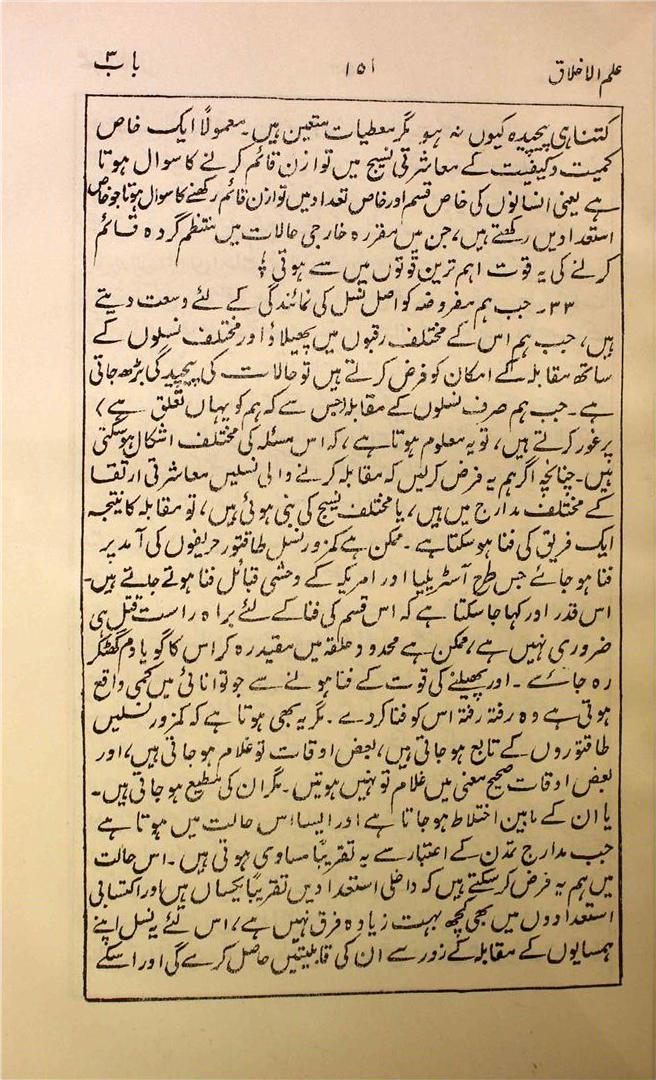 علم الاخلاق ۱۵۱ باب ۳
کتنا ہی پیچیدہ کیوں نہ ہو مگر معطیات متعین ہیں۔ معمولاً ایک خاص
کمیت و کیفیت کے معاشرتی نسیج میں توازن قائم کرنے کا سوال ہوتا
ہے یعنی انسانوں کی خاص قسم اور خاص تعداد میں توازن قائم رکھنے کا سوال ہوتا جو خاص
استعدادیں رکھتے ہیں، جن میں مقررہ خارجی حالات میں منتظم گردہ قائم
کرنے کی یہ قوت اہم ترین قوتوں میں سے ہوتی ہے
۳۳۔ جب ہم مفروضہ کو اصل نسل کی نمائندگی کے لئے وسعت دیتے
ہیں، جب ہم اس کے مختلف رقبوں میں پھیلاؤ اور مختلف نسلوں کے
ساتھ مقابلہ کے امکان کو فرض کرتے ہیں تو حالات کی پیچیدگی بڑھ جاتی
ہے۔ جب ہم صرف نسلوں کے مقابلہ (جس سے کہ ہم کو یہاں تعلق ہے)
پر غور کرتے ہیں، تو یہ معلوم ہوتا ہے، کہ اس مسئلہ کی مختلف اشکال ہو سکتی
ہیں۔ چنانچہ اگر ہم یہ فرض کرلیں کہ مقابلہ کرنے والی نسلیں معاشرتی ارتقا
کے مختلف مدارج میں ہیں، یا مختلف نسیج کی بنی ہوئی ہیں، تو مقابلہ کا نتیجہ
ایک فریق کی فنا ہو سکتا ہے۔ ممکن ہے کمزور نسل طاقتور حریفوں کی آمد پر
فنا ہو جائے جس طرح آسٹریلیا اور امریکہ کے وحشی قبائل فنا ہوتے جاتے ہیں۔
اس قدر اور کہا جا سکتا ہے کہ اس قسم کی فنا کے لئے براہ راست قتل ہی
ضروری نہیں ہے، ممکن ہے محدود حلقہ میں مقید رہ کر اس کا گویا دم گھٹکر
رہ جائے۔ اور پھیلنے کی قوت کے فنا ہونے سے جو توانائی میں کمی واقع
ہوتی ہے وہ رفتہ رفتہ اس کو فنا کردے۔ مگر یہ بھی ہوتا ہے کہ کمزور نسلیں
طاقتوروں کے تابع ہو جاتی ہیں، بعض اوقات تو غلام ہو جاتی ہیں، اور
بعض اوقات صحیح معنی میں غلام تو نہیں ہوتیں۔ مگر ان کی مطیع ہو جاتی ہیں۔
یا ان کے مابین اختلاط ہو جاتا ہے اور ایسا اس حالت میں ہوتا ہے
جب مدارج تمدن کے اعتبار سے یہ تقریباً مساوی ہوتی ہیں۔ اس حالت
میں ہم یہ فرض کر سکتے ہیں کہ داخلی استعدادیں تقریباً یکساں ہیں اور اکتسابی
استعدادوں میں بھی کچھ بہت زیادہ فرق نہیں ہے، اس لئے یہ نسل اپنے
ہمسایوں کے مقابلہ کے زور سے ان کی قابلیتیں حاصل کرے گی اور اسکے